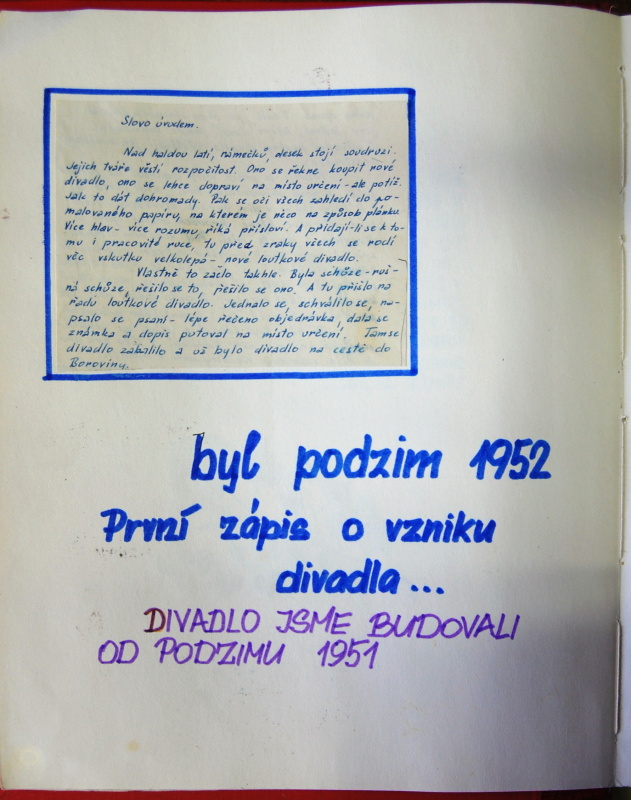 Slovo úvodem.
Nad haldou latí, rámečků, desek stojí soudruzi.
Jejich tváře věstí rozpočitost. Ono se řekne koupit nové
divadlo, ono se lehce dopraví na místo určení - ale potíž.
Jak to dát dohromady. Pak se oči všech zahledí do po-
malovaného papíru, na kterém je něco na způsob plánku.
Více hlav - více rozumu, říká přísloví. A přidají-li se k to-
mu i pracovité ruce, tu před zraky všech se rodí
věc vskutku velkolepá - nové loutkové divadlo.
Vlastně to začlo takhle. Byla schůze - ruš-
ná schůze, řešilo se to, řešilo se ono. A tu přišlo na
řadu loutkové divadlo. Jednalo se, schválilo se, na-
psalo se psaní - lépe řečeno objednávka, dala se
známka a dopis putoval na místo určení. Tam se
divadlo zabalilo a už bylo divadlo na cestě do
Boroviny.
byl podzim 1952
První zápis o vzniku
divadla...
DIVADLO JSME BUDOVALI
OD PODZIMU 1951